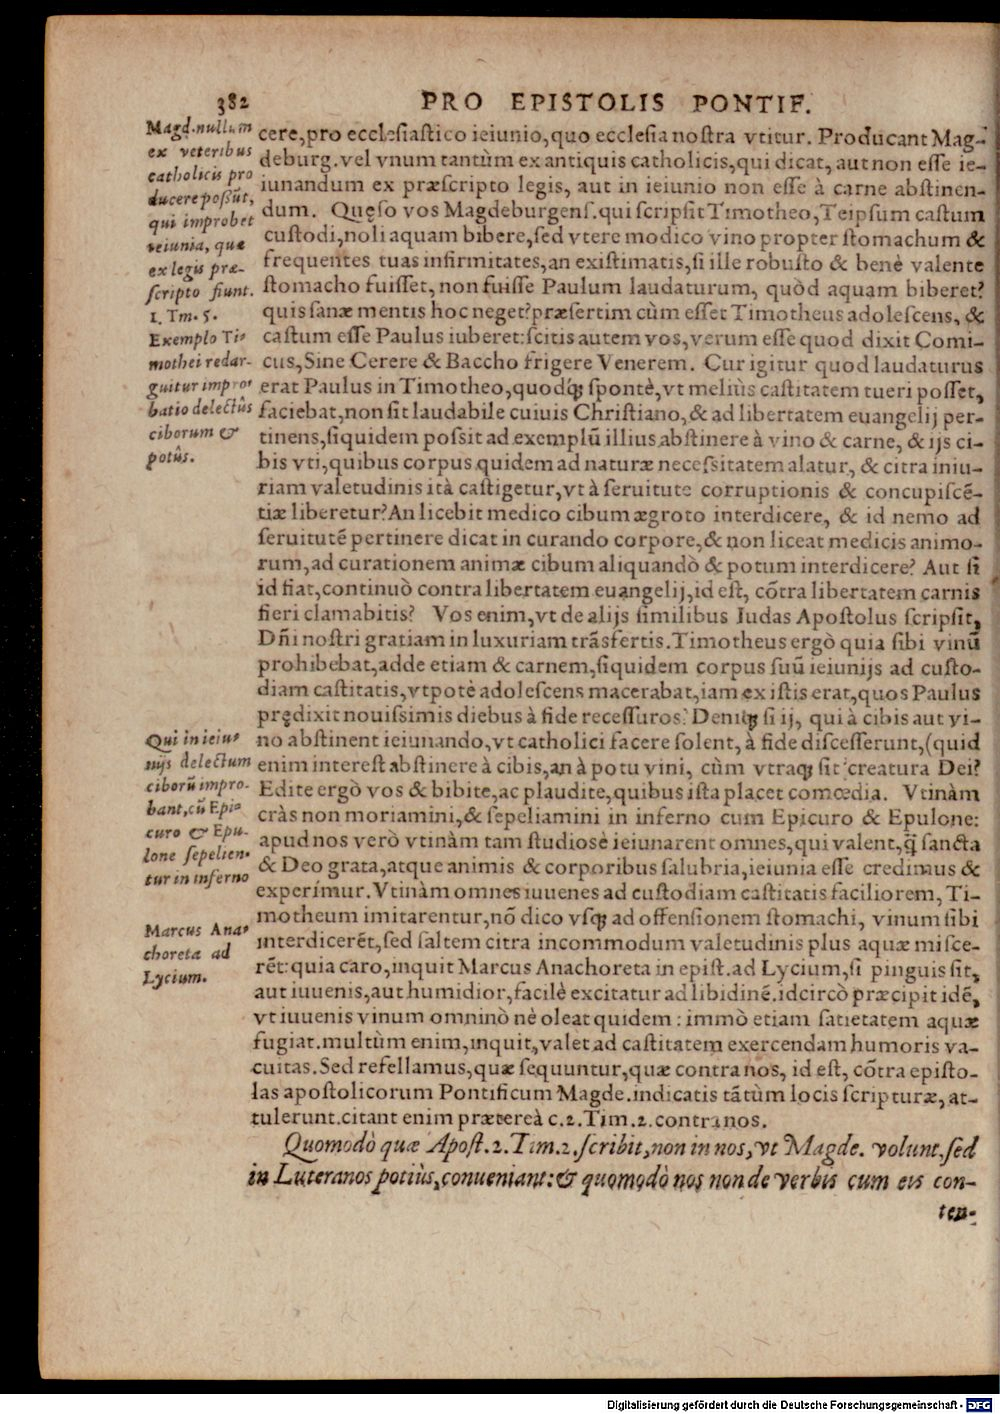 382
PRO EPISTOLIS PONTIF.
Magd. nullum
ex veteribus
catholicis pro
ducere possūt,
qui improbet
ieiunia, quæ
ex legis præ-
scripto fiunt.
1. Tm. 5.
Exemplo Ti-
mothei redar-
guitur impro-
batio delectûs
ciborum &
potûs.
Qui in ieiu-
nijs delectum
ciborū impro-
bant, cū Epi-
curo & Epu-
lone sepelien-
tur in inferno
Marcus Ana-
choreta ad
Lycium.
cere, pro ecclesiastico ieiunio, quo ecclesia nostra vtitur. Producant Mag-
deburg. vel vnum tantùm ex antiquis catholicis, qui dicat, aut non esse ie-
iunandum ex præscripto legis, aut in ieiunio non esse à carne abstinen-
dum. Quęso vos Magdeburgens. qui scripsit Timotheo, Teipsum castum
custodi, noli aquam bibere, sed vtere modico vino propter stomachum &
frequentes tuas infirmitates, an existimatis, si ille robusto & benè valente
stomacho fuisset, non fuisse Paulum laudaturum, quòd aquam biberet?
quis sanæ mentis hoc neget? præsertim cùm esset Timotheus adolescens, &
castum esse Paulus iuberet: scitis autem vos, verum esse quod dixit Comi-
cus, Sine Cerere & Baccho frigere Venerem. Cur igitur quod laudaturus
erat Paulus in Timotheo, quodq́; spontè, vt meliùs castitatem tueri posset,
faciebat, non sit laudabile cuiuis Christiano, & ad libertatem euangelij per-
tinens, siquidem possit ad exemplū illius abstinere à vino & carne, & ijs ci-
bis vti, quibus corpus quidem ad naturæ necessitatem alatur, & citra iniu-
riam valetudinis ità castigetur, vt à seruitute corruptionis & concupiscē-
tiæ liberetur? An licebit medico cibum ægroto interdicere, & id nemo ad
seruitutē pertinere dicat in curando corpore, & non liceat medicis animo-
rum, ad curationem animæ cibum aliquandò & potum interdicere? Aut si
id fiat, continuò contra libertatem euangelij, id est, cōtra libertatem carnis
fieri clamabitis? Vos enim, vt de alijs similibus Judas Apostolus scripsit,
Dñi nostri gratiam in luxuriam trāsfertis. Timotheus ergò quia sibi vinū
prohibebat, adde etiam & carnem, siquidem corpus suū ieiunijs ad custo-
diam castitatis, vtpotè adolescens macerabat, iam ex istis erat, quos Paulus
prędixit nouissimis diebus à fide recessuros? Deniq; si ij, qui à cibis aut vi-
no abstinent ieiunando, vt catholici facere solent, à fide discesserunt, (quid
enim interest abstinere à cibis, an à potu vini, cùm vtraq; sit creatura Dei?
Edite ergò vos & bibite, ac plaudite, quibus ista placet comœdia. Vtinàm
cràs non moriamini, & sepeliamini in inferno cum Epicuro & Epulone:
apud nos verò vtinàm tam studiosè ieiunarent omnes, qui valent, q̃ sancta
& Deo grata, atque animis & corporibus salubria, ieiunia esse credimus &
experimur. Vtinàm omnes iuuenes ad custodiam castitatis faciliorem, Ti-
motheum imitarentur, nō dico vsq; ad offensionem stomachi, vinum sibi
interdicerēt, sed saltem citra incommodum valetudinis plus aquæ misce-
rēt: quia caro, inquit Marcus Anachoreta in epist. ad Lycium, si pinguis sit,
aut iuuenis, aut humidior, facilè excitatur ad libidinē. idcircò præcipit idē,
vt iuuenis vinum omninò nè oleat quidem: immò etiam satietatem aquæ
fugiat. multùm enim, inquit, valet ad castitatem exercendam humoris va-
cuitas. Sed refellamus, quæ sequuntur, quæ contra nos, id est, cōtra episto-
las apostolicorum Pontificum Magde. indicatis tātùm locis scripturæ, at-
tulerunt. citant enim prætereà c. 2. Tim. 2. contra nos.
Quomodò quæ Apost. 2. Tim. 2. scribit, non in nos, vt Magde. volunt. sed
in Luteranos potiùs, conueniant: & quomodò nos non de verbis cum eis con-
ten-
Digitalisierung gefördert durch die Deutsche Forschungsgemeinschaft - DFG